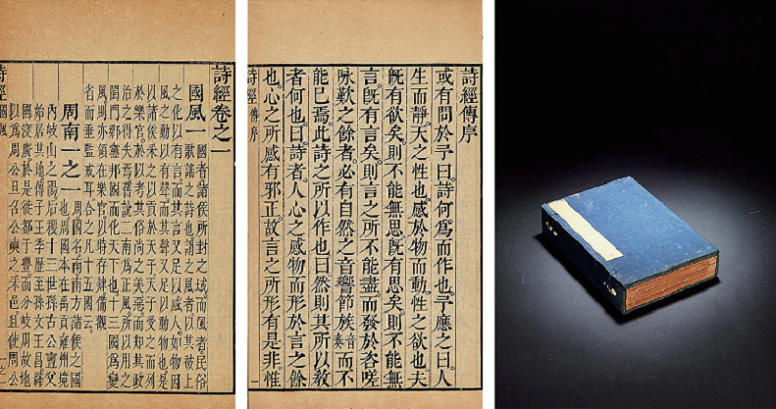 詩經卷之一
國風一 國者諸侯所封之域而風者民俗
歌謠之詩也謂之風者以其被上
之化以有言而其言又足以感人如物因
風之動以有聲而其聲又足以動物也是
以諸侯采之以貢於天子天子受之而列
於樂官於以考其俗尚之美惡而知其政
治之得失焉舊說二南為正風所以用之
閨門鄉黨邦國而化天下也十三國為變
風則亦領在樂官以時存肄備觀
省而垂監戒耳合之凡十五國云
周南一之一 周國名南南方諸侯之國
也周國本在禹貢雍州境
內岐山之陽后稷十三世孫古公亶父
始居其地傳子王季歷至孫文王昌辟
國寖廣於是徙都于豐而分岐周故地
以為周公旦召公奭之采邑且使周公
詩經 國風 一之一
詩經傳序
或有問於予曰詩何爲而作也予應之曰人
生而靜天之性也感於物而動性之欲也夫
既有欲矣則不能無思既有思矣則不能無
言既有言矣則言之所不能盡而發於咨嗟
咏歎之餘者必有自然之音響節族音奏而不
能已焉此詩之所以作也曰然則其所以教
者何也曰詩者人心之感物而形於言之餘
也心之所感有邪正故言之所形有是非惟
詩經 傳序 一